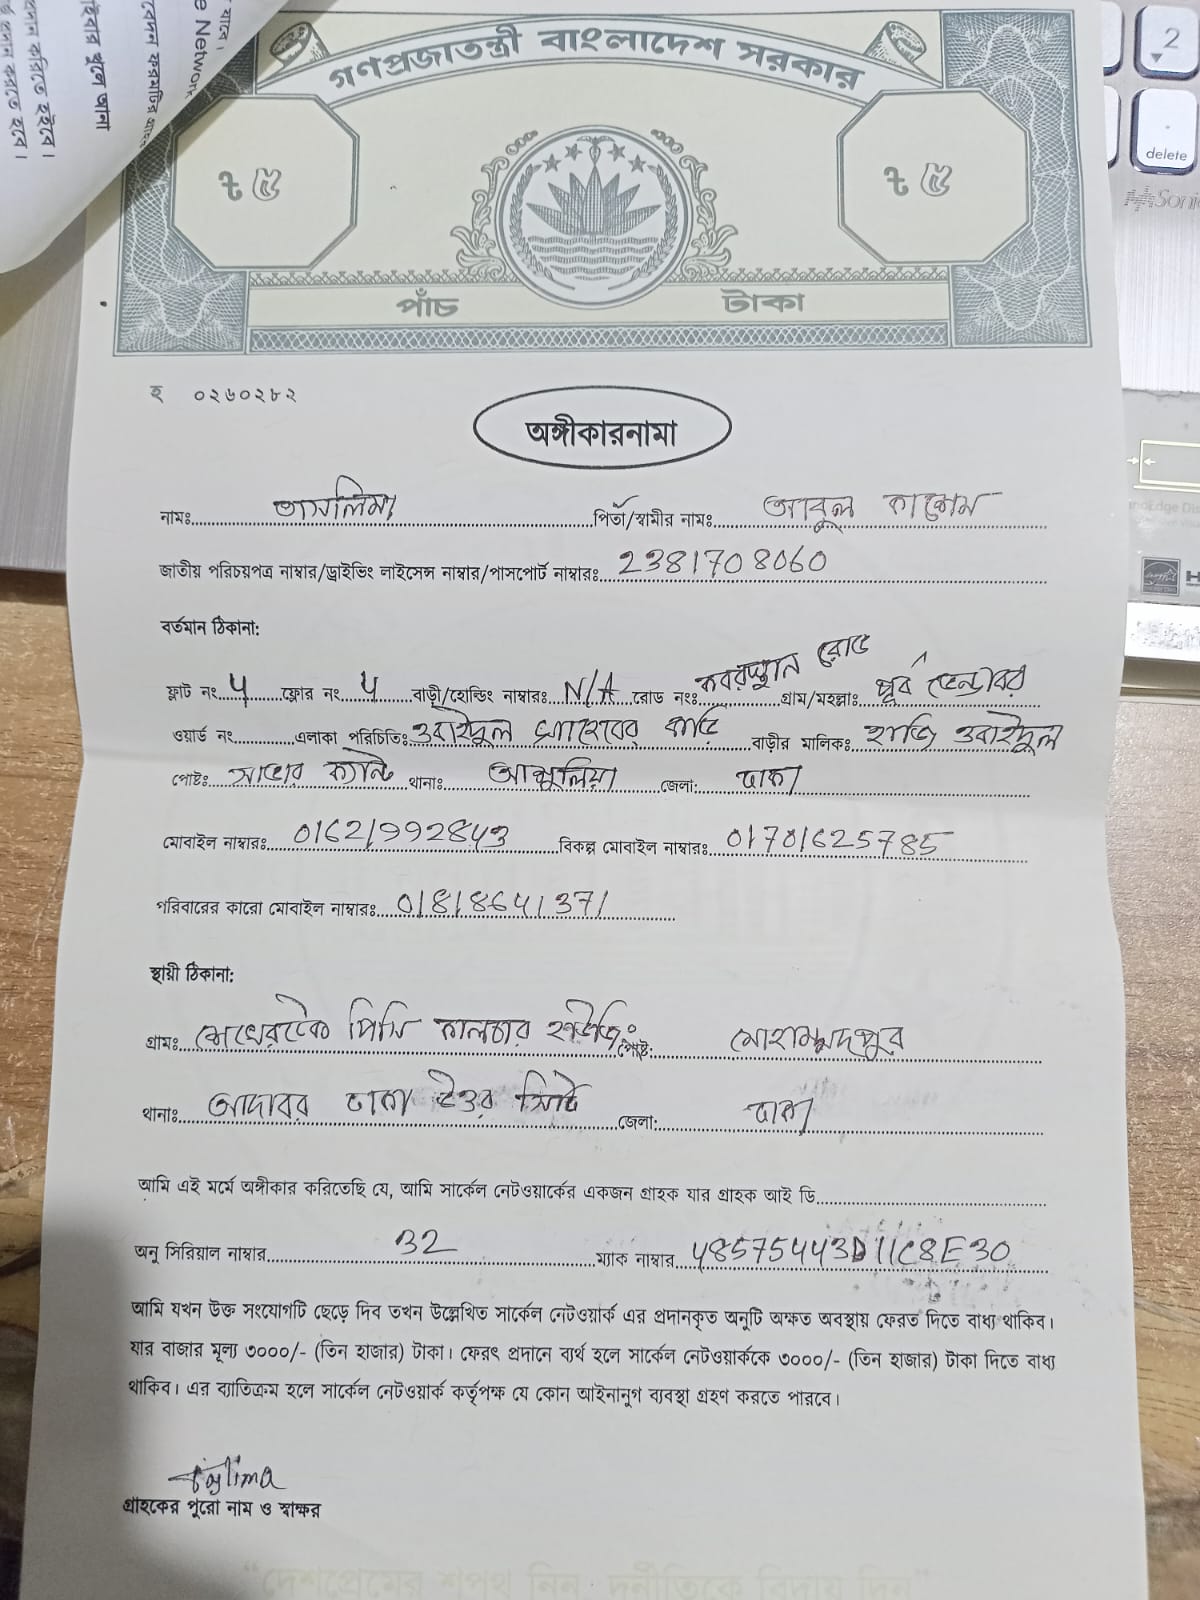 যাবে।
e Network
গণপ্রজাতন্ত্রী বাংলাদেশ সরকার
৳ ৫
৳ ৫
পাঁচ টাকা
2
delete
হ ০২৬০২৮২
অঙ্গীকারনামা
নামঃ তাসলিমা পিতা/স্বামীর নামঃ আবুল কাশেম
জাতীয় পরিচয়পত্র নাম্বার/ড্রাইভিং লাইসেন্স নাম্বার/পাসপোর্ট নাম্বারঃ 2381708060
বর্তমান ঠিকানা:
ফ্লাট নং ৫ ফ্লোর নং ৫ বাড়ী/হোল্ডিং নাম্বারঃ N/A রোড নংঃ কবরস্থান রোড গ্রাম/মহল্লাঃ পূর্ব ডেন্ডাবর
ওয়ার্ড নং এলাকা পরিচিতিঃ ওবাইদুল সাহেবের বাড়ি বাড়ীর মালিকঃ হাজি ওবাইদুল
পোষ্টঃ সাভার ক্যান্ট থানাঃ আশুলিয়া জেলা: ঢাকা
মোবাইল নাম্বারঃ 01621992843 বিকল্প মোবাইল নাম্বারঃ 01701625785
পরিবারের কারো মোবাইল নাম্বারঃ 01818641371
স্থায়ী ঠিকানা:
গ্রামঃ শেখেরটেক পিসি কালচার হাউজিং পোষ্ট: মোহাম্মদপুর
থানাঃ আদাবর ঢাকা উত্তর সিটি জেলা: ঢাকা
আমি এই মর্মে অঙ্গীকার করিতেছি যে, আমি সার্কেল নেটওয়ার্কের একজন গ্রাহক যার গ্রাহক আই ডি
অনু সিরিয়াল নাম্বার 32 ম্যাক নাম্বার 48575443D11C8E30
আমি যখন উক্ত সংযোগটি ছেড়ে দিব তখন উল্লেখিত সার্কেল নেটওয়ার্ক এর প্রদানকৃত অনুটি অক্ষত অবস্থায় ফেরত দিতে বাধ্য থাকিব।
যার বাজার মূল্য ৩০০০/- (তিন হাজার) টাকা। ফেরৎ প্রদানে ব্যর্থ হলে সার্কেল নেটওয়ার্ককে ৩০০০/- (তিন হাজার) টাকা দিতে বাধ্য
থাকিব। এর ব্যতিক্রম হলে সার্কেল নেটওয়ার্ক কর্তৃপক্ষ যে কোন আইনানুগ ব্যবস্থা গ্রহণ করতে পারবে।
Taslima
গ্রাহকের পুরো নাম ও স্বাক্ষর
"দেশপ্রেমের শপথ নিন, দুর্নীতিকে বিদায় দিন"